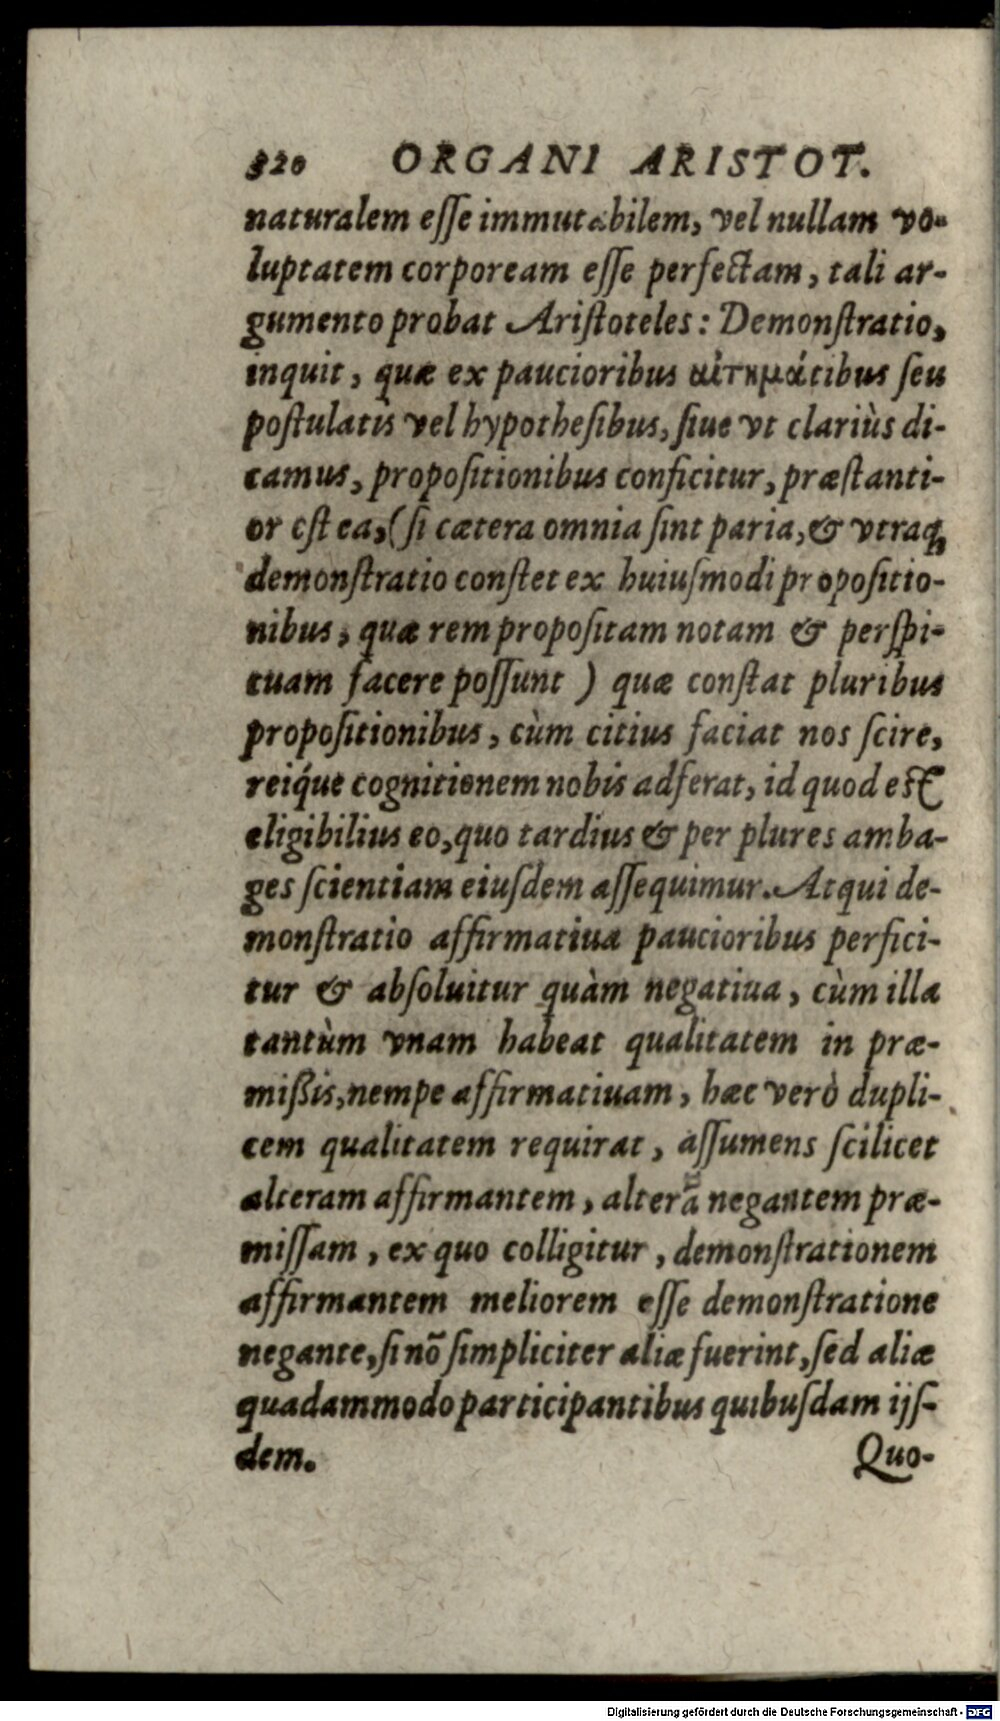 320 ORGANI ARISTOT.
naturalem eſſe immutabilem, vel nullam vo-
luptatem corpoream eſſe perfectam, tali ar-
gumento probat Ariſtoteles: Demonſtratio,
inquit, quæ ex paucioribus αἰτημάtibus ſeu
poſtulatis vel hypotheſibus, ſiue vt clariùs di-
camus, propoſitionibus conficitur, præſtanti-
or eſt ea, (ſi cætera omnia ſint paria, & vtraq;
demonſtratio conſtet ex huiuſmodi propoſitio-
nibus, quæ rem propoſitam notam & perſpi-
cuam facere poſſunt) quæ conſtat pluribus
propoſitionibus, cùm citius faciat nos ſcire,
reiq́ue cognitionem nobis adferat, id quod eſt
eligibilius eo, quo tardius & per plures amba-
ges ſcientiam eiuſdem aſſequimur. Atqui de-
monſtratio affirmatiua paucioribus perfici-
tur & abſoluitur quàm negatiua, cùm illa
tantùm vnam habeat qualitatem in præ-
mißis, nempe affirmatiuam, hæc verò dupli-
cem qualitatem requirat, aſſumens ſcilicet
alteram affirmantem, alterã negantem præ-
miſſam, ex quo colligitur, demonſtrationem
affirmantem meliorem eſſe demonſtratione
negante, ſi nõ ſimpliciter aliæ fuerint, ſed aliæ
quadammodo participantibus quibuſdam ijſ-
dem. Quo-
Digitalisierung gefördert durch die Deutsche Forschungsgemeinschaft - DFG